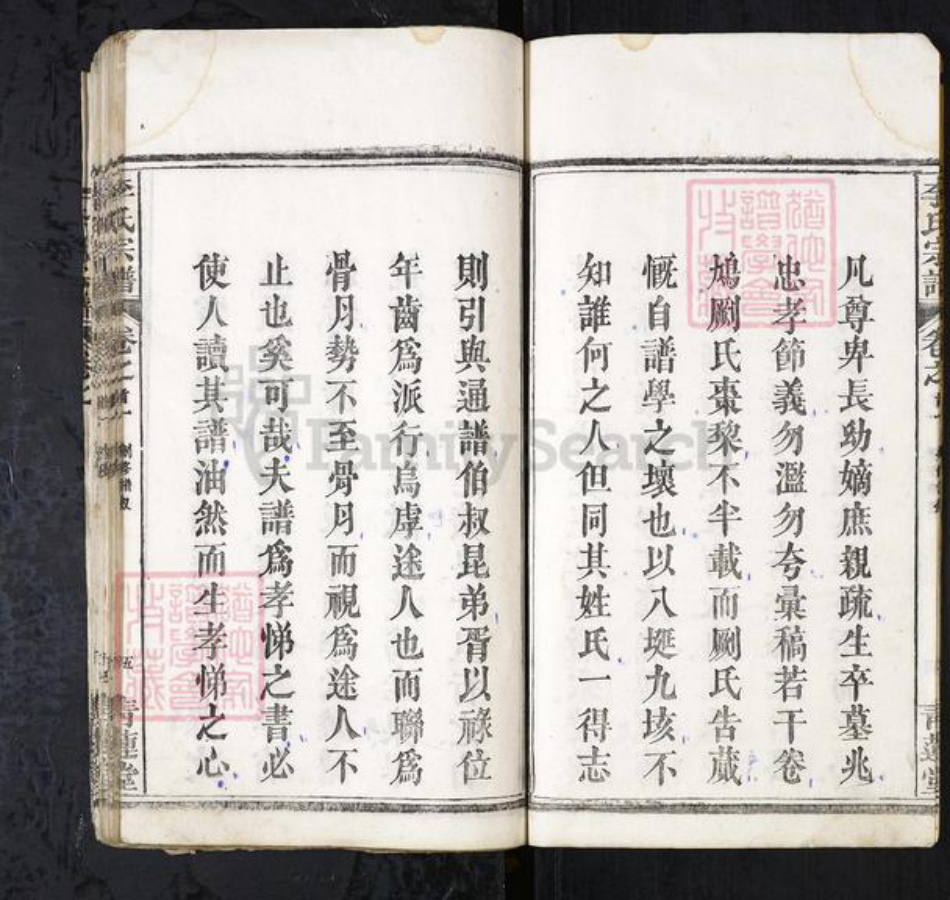 凡尊卑長幼嫡庶親疏生卒墓兆
忠孝節義勿濫勿夸彙稿若干卷
鳩劂氏棗黎不半載而劂氏告蕆
慨自譜學之壞也以八埏九垓不
知誰何之人但同其姓氏一得志
則引與通譜伯叔昆弟胥以祿位
年齒爲派行烏虖途人也而聯爲
骨月勢不至骨月而視爲途人不
止也奚可哉夫譜爲孝悌之書必
使人讀其譜油然而生孝悌之心
李氏宗譜
卷之首
五
青蓮堂
FamilySearch